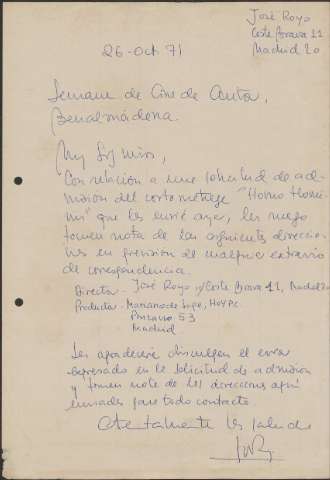 José Royo
Costa Brava 11
Madrid 20
26-Oct 71
Semana de Cine de Autor,
Benalmádena.
Muy Srs míos,
Con relación a una solicitud de ad-
misión del cortometraje "Homo Homi-
ni" que les envié ayer, les ruego
tomen nota de las siguientes direccio-
nes en previsión de cualquier extravío
de correspondencia.
Director - José Royo Costa Brava 11, Madrid 20
Productor - Mariano de
53
Madrid
Les agradeceré disculpen el error
expresado en la solicitud de admisión
y tomen nota de las direcciones aquí
enviadas para todo contacto.
Atentamente les saluda